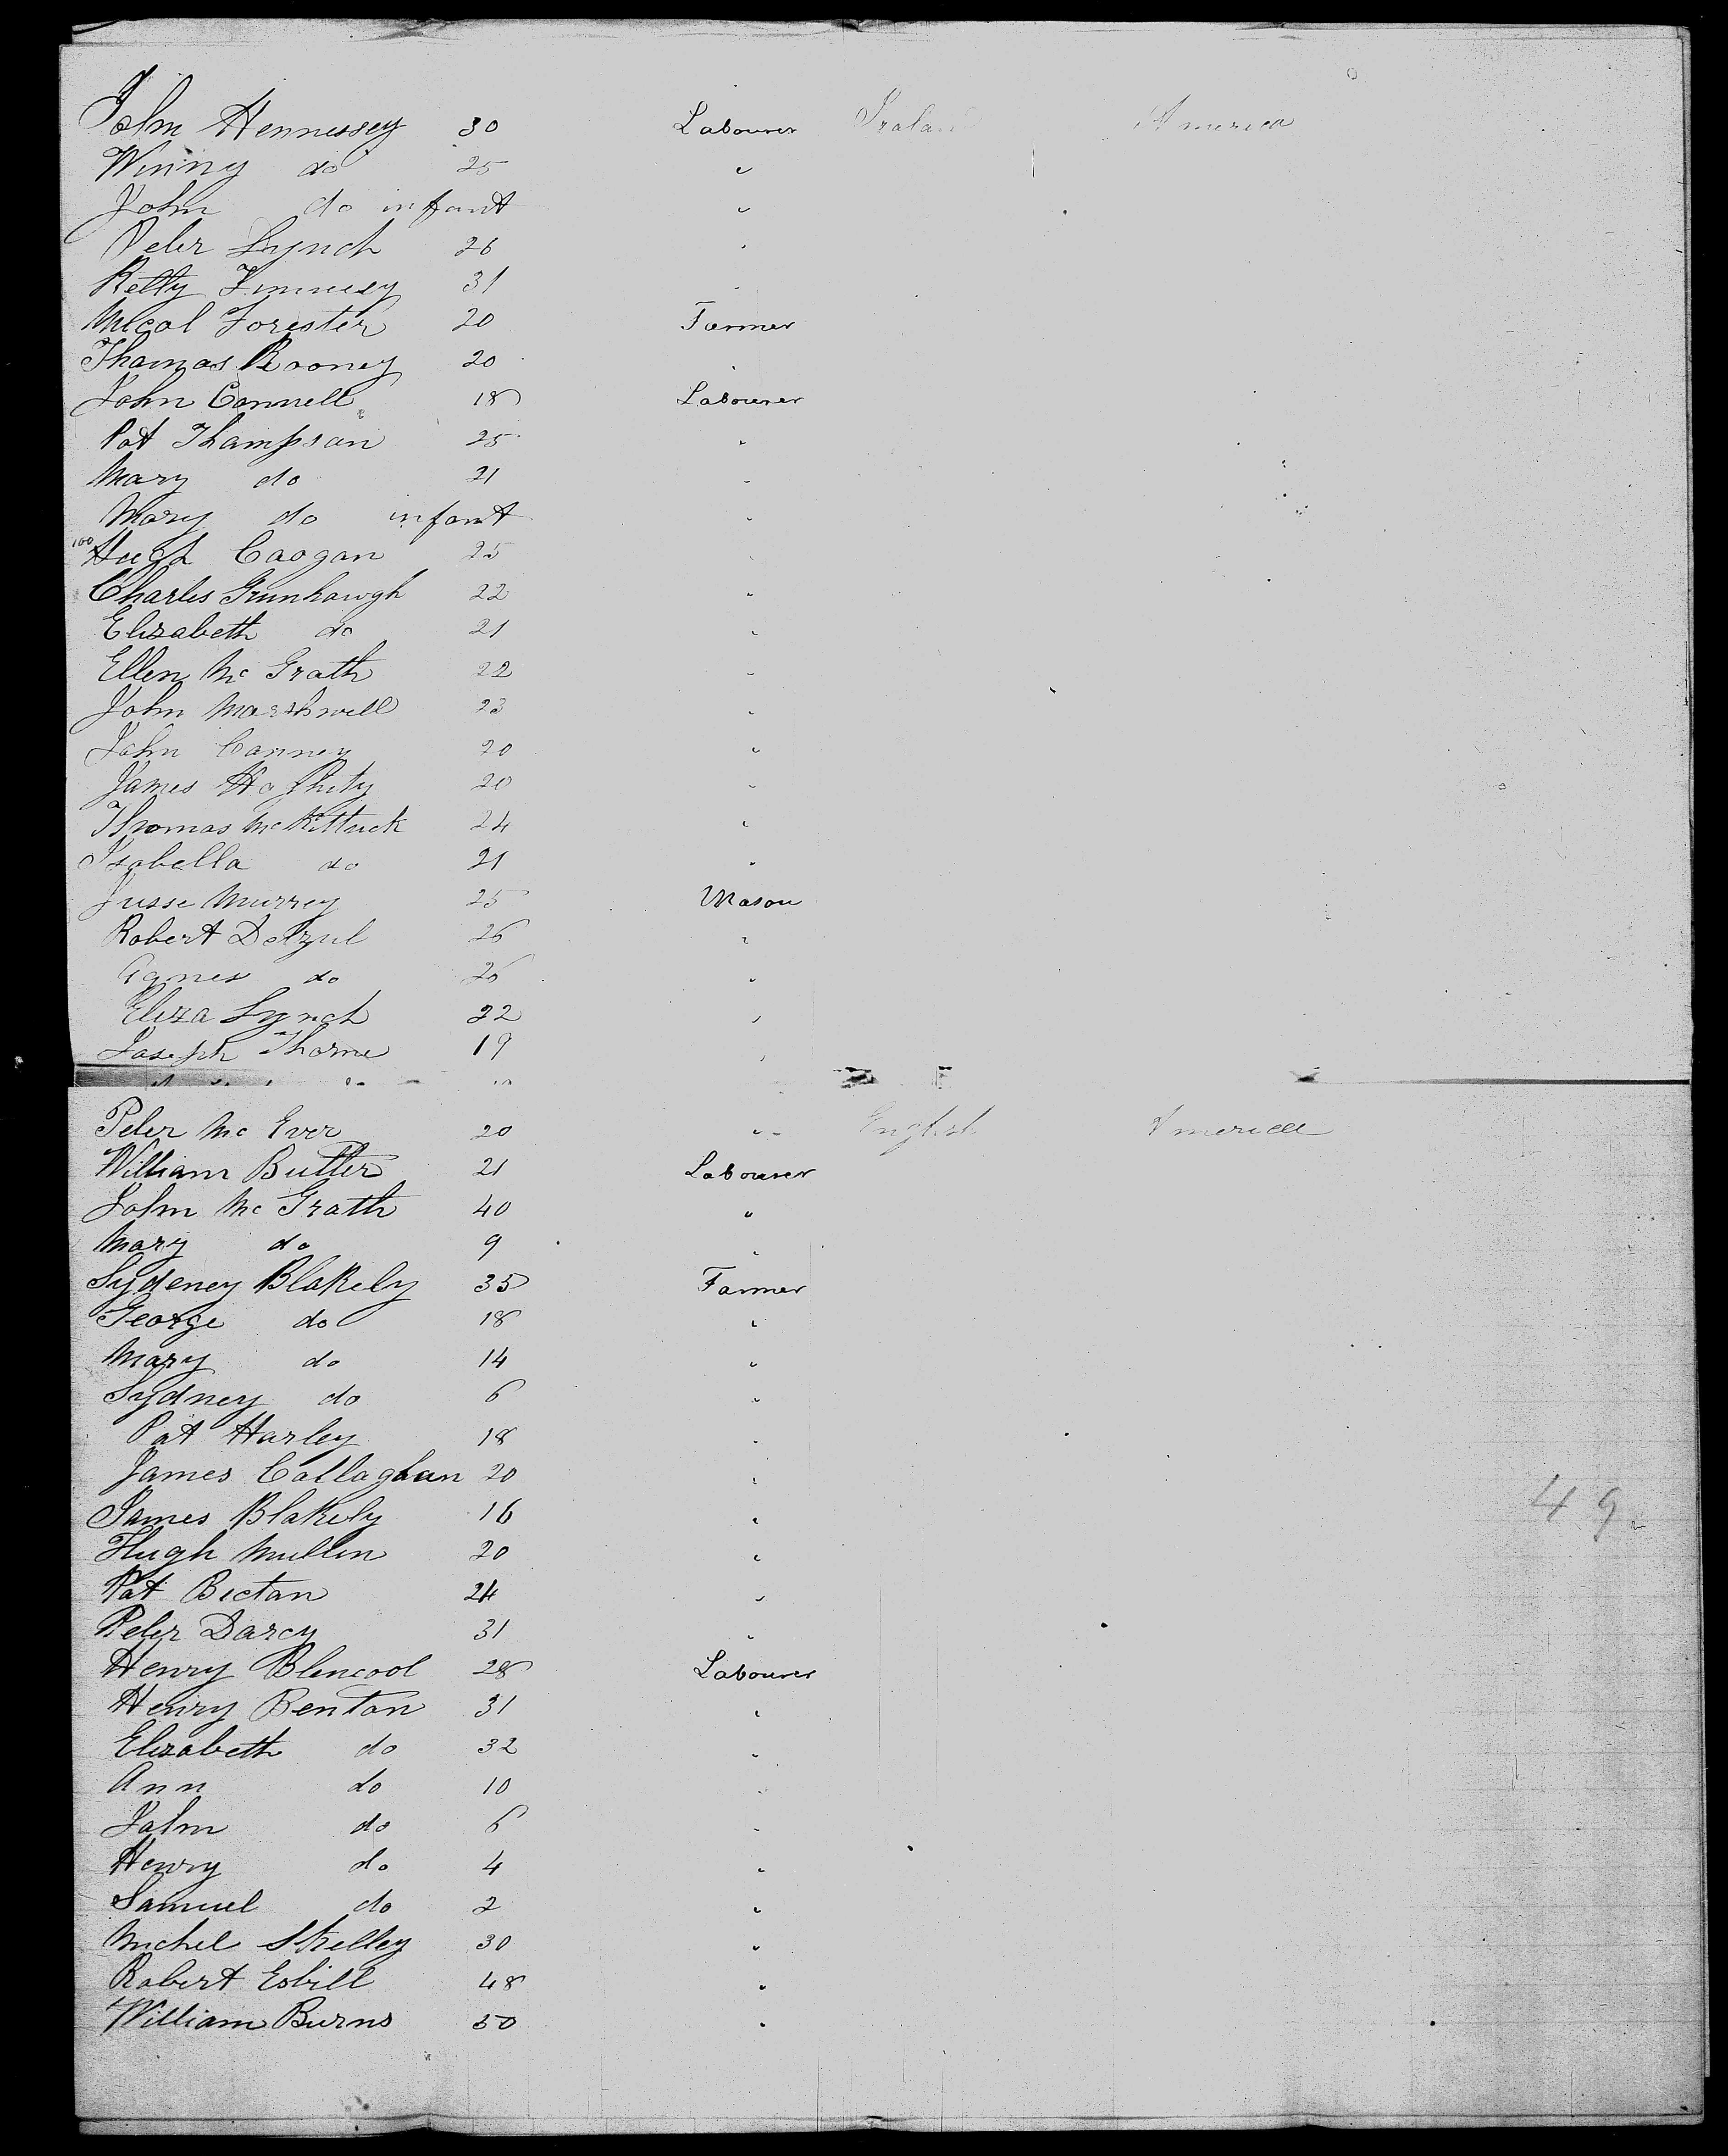 John Hennessey 30 Labourer Ireland America
Winny do 25 "
John do infant "
Peter Lynch 26 "
Ketty 31 "
Mical Forester 20 Farmer
Thomas Rooney 20 "
John Connell 18 Labourer
Pat Thampson 25 "
Mary do 21 "
Mary do infant "
100 Hugh Caogan 25 "
Charles Grunhawgh 22 "
Elizabeth do 21 "
Ellen Mc Grath 22 "
John Marshwell 23 "
John Canney 20 "
James Haffhity 20 "
Thomas McKittrick 24 "
Isabella do 21 "
Jusse Murrey 25 Mason
Robert Delzul 26 "
Agnes do 26 "
Eliza Lynch 22 "
Joseph Thorne 19 "
Peter Mc Ever 20 " English America
William Butler 21 Labourer
John Mc Grath 40 "
Mary do 9 "
Sydeney Blakely 35 Farmer
George do 18 "
Mary do 14 "
Sydney do 6 "
Pat Harley 18 "
James Callaghan 20 "
James Blakely 16 "
49
Hugh Mullin 20 "
Pat Bictan 24 "
Peter Darcy 31 "
Henry Blencool 28 Labourer
Henry Benton 31 "
Elizabeth do 32 "
Ann do 10 "
John do 6 "
Henry do 4 "
Samuel do 2 "
Michel Skelley 30 "
Robert Esbill 48 "
William Burns 50 "